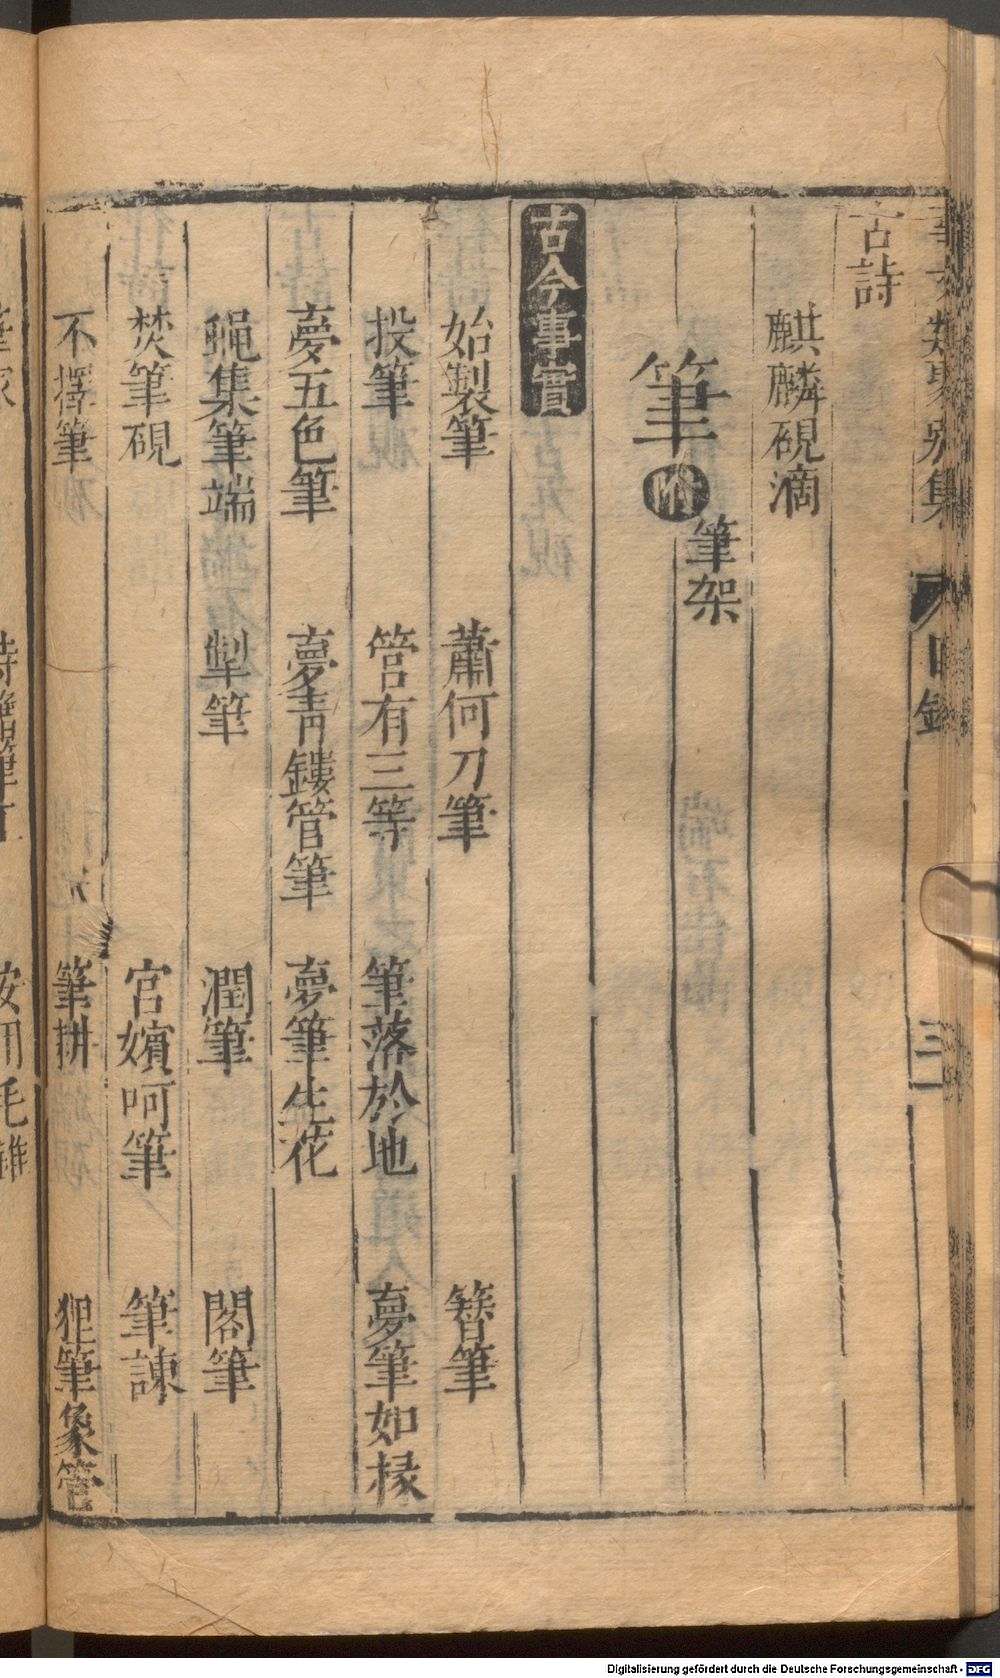 古詩
麒麟硯滴
筆 附 筆架
古今事實
始製筆 蕭何刀筆 簪筆
投筆 筦有三等 筆落於地 夢筆如椽
夢五色筆 夢青鏤管筆 夢筆生花
蠅集筆端 掣筆 潤筆 閣筆
焚筆硯 宮嬪呵筆 筆諫
不擇筆 筆耕 狸筆象管
Digitalisierung gefördert durch die Deutsche Forschungsgemeinschaft - DFG